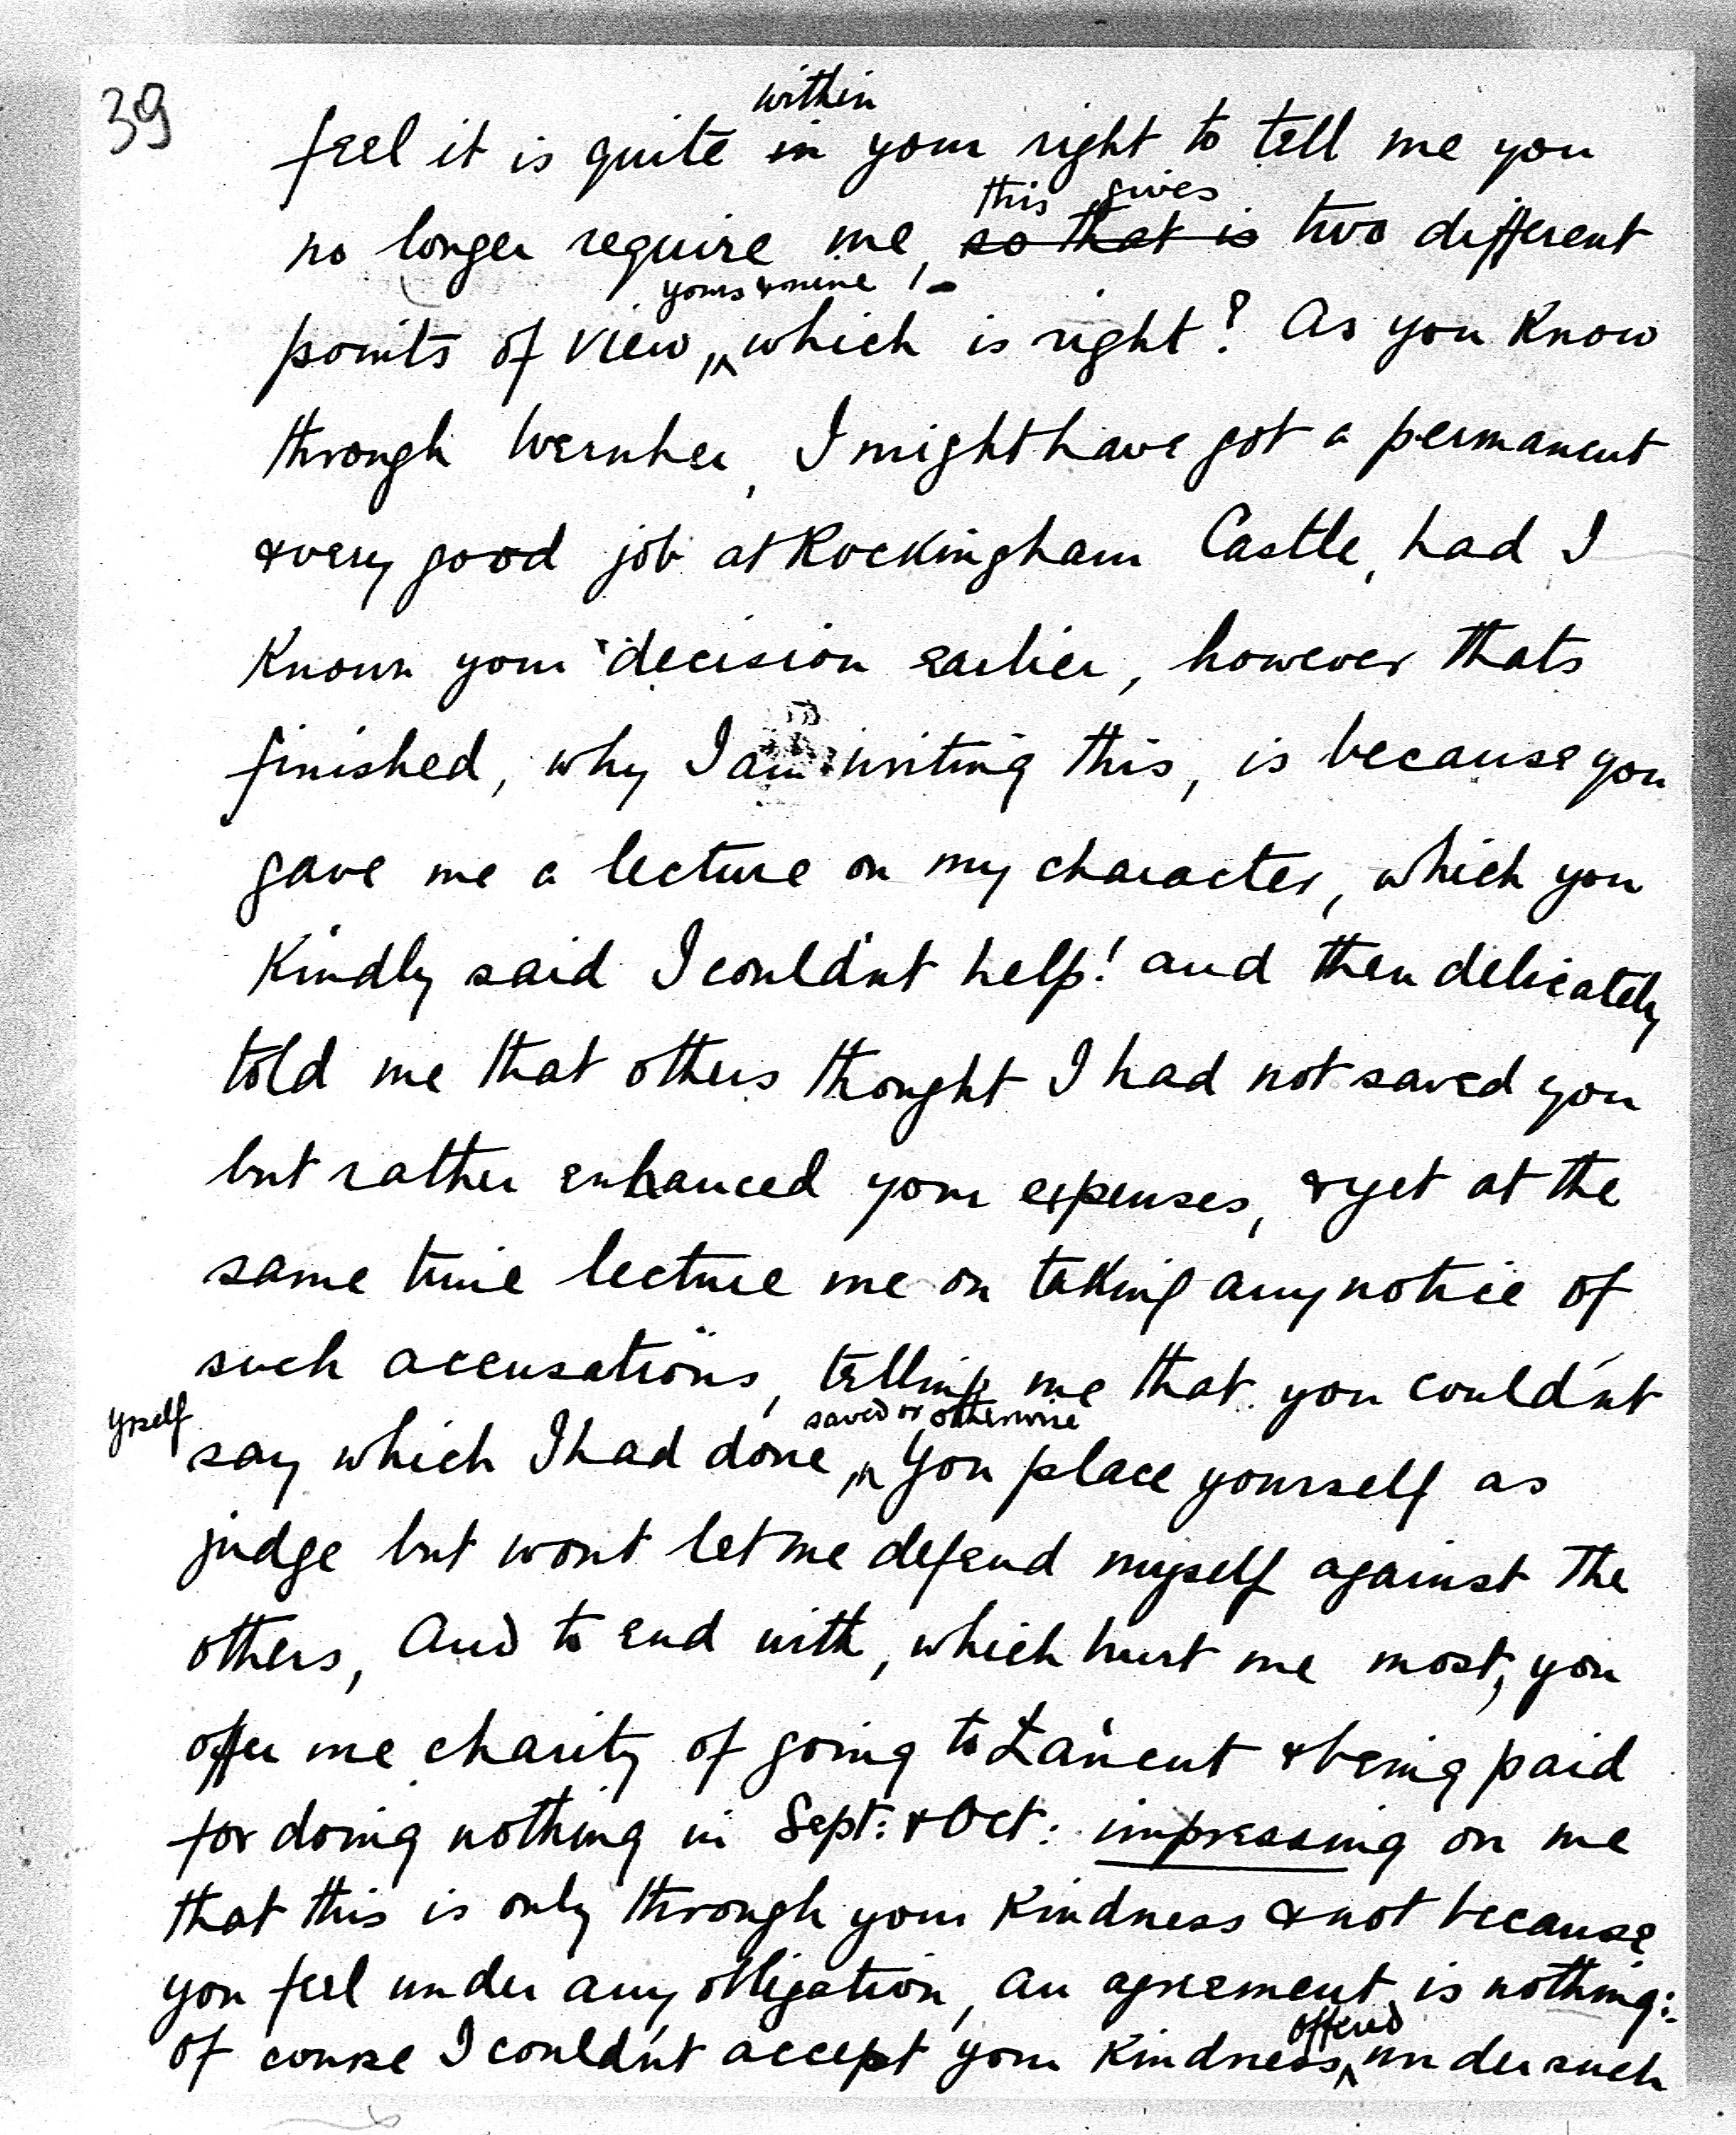 39
within
feel it is quite in your right to tell me you
this gives
no longer require me, so that is two different
yours & mine !-
points of view, which is right? As you know
through Wernher, I might have got a permanent
& very good job at Rockingham Castle, had I
known your decision earlier, however thats
finished, why I am writing this, is because you
gave me a lecture on my character, which you
kindly said I could'nt help! and then delicately
told me that others thought I had not saved you
but rather enhanced your expenses, & yet at the
same time lecture me on taking any notice of
such accusations, telling me that you could'nt
yrself
saved or otherwise
say which I had done, you place yourself as
judge but wont let me defend myself against the
others, And to end with, which hurt me most, you
offer me charity of going to Łańcut & being paid
for doing nothing in Sept: & Oct: impressing on me
that this is only through your kindness & not because
you feel under any obligation, an agreement is nothing:
offered
of course I could'nt accept your kindness, under such